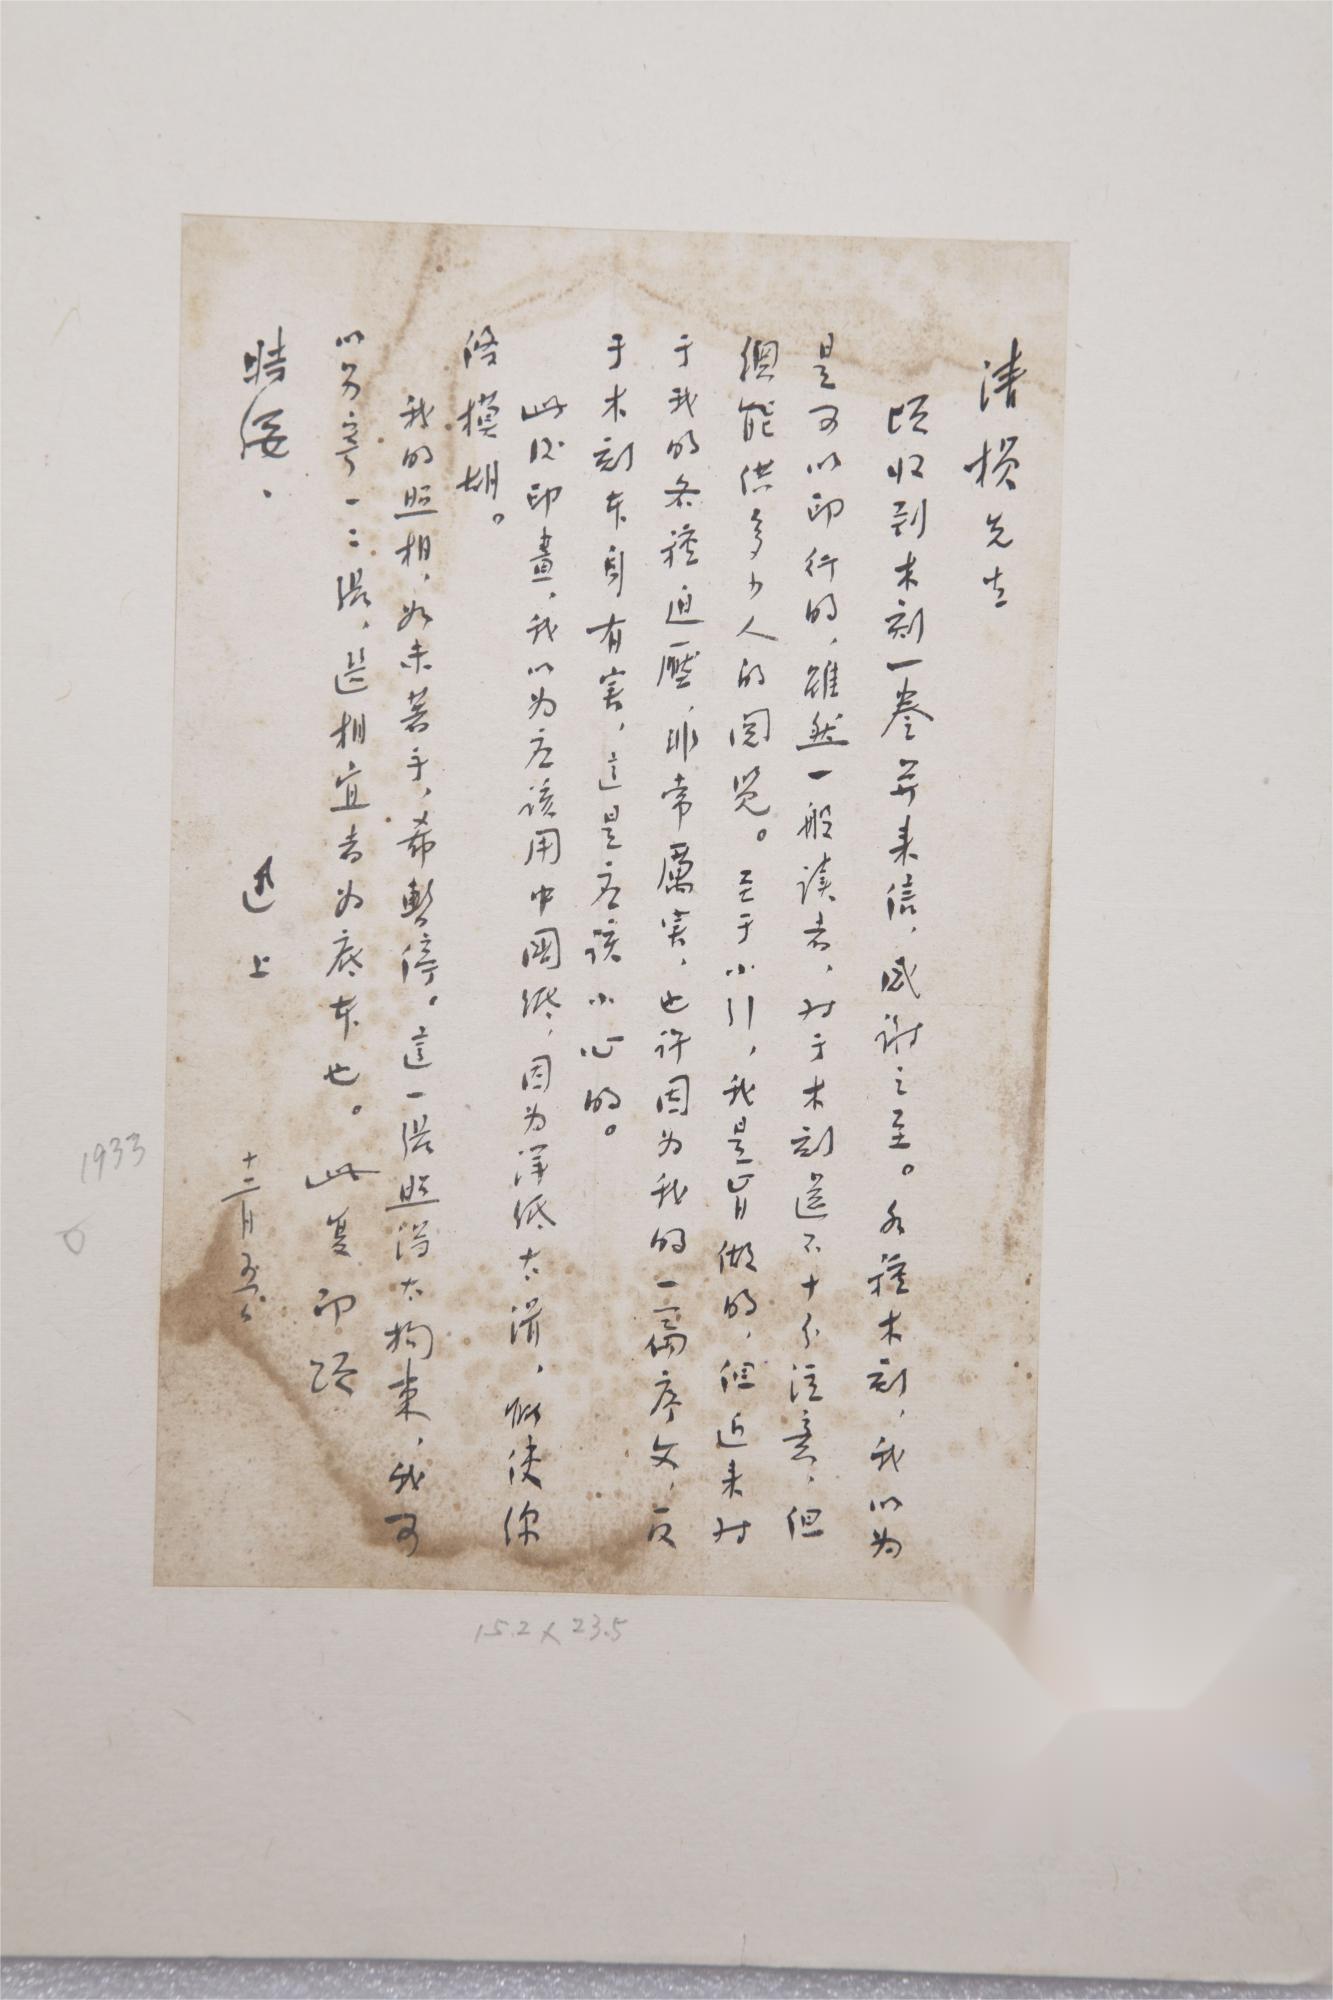 清楨先生
頃收到木刻一卷并来信,感谢之至。各種木刻,我以为
是可以印行的,雖然一般读者,对于木刻還不十分注意,但
總能供多少人的阅览。至于小引,我是肯做的,但近来对
于我的各種迫壓,非常厲害,也许因为我的一篇序文,反
于木刻本身有害,這是应该小心的。
此后印畫,我以为应该用中國纸,因为洋纸太滑,能使線
條模胡。
我的照相,如未著手,希暫停。這一张照得太拘束,我可
以另寄一二张,選相宜者为底本也。此复即颂
時绥、
迅上
十二月五夜
1933
15.2×23.5